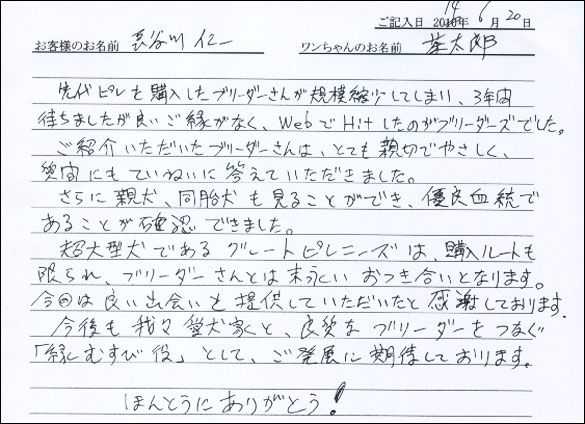 ご記入日 2014年 6月 20日
お客様のお名前 長谷川 仁一 ワンちゃんのお名前 太郎
先代ピレを購入したブリーダーさんが規模縮少してしまい、3年間
待ちましたが良いご縁がなく、WebでHitしたのがブリーダーズでした。
ご紹介いただいたブリーダーさんは、とても親切でやさしく、
質問にもていねいに答えていただきました。
さらに親犬、同胎犬も見ることができ、優良血統で
あることが確認できました。
超大型犬であるグレートピレニーズは、購入ルートも
限られ、ブリーダーさんとは末永いおつき合いとなります。
今回は良い出会いを提供していただいたと感謝しております。
今後も我々愛犬家と、良質なブリーダーをつなぐ
「縁むすび役」として、ご発展に期待しております。
ほんとうにありがとう!